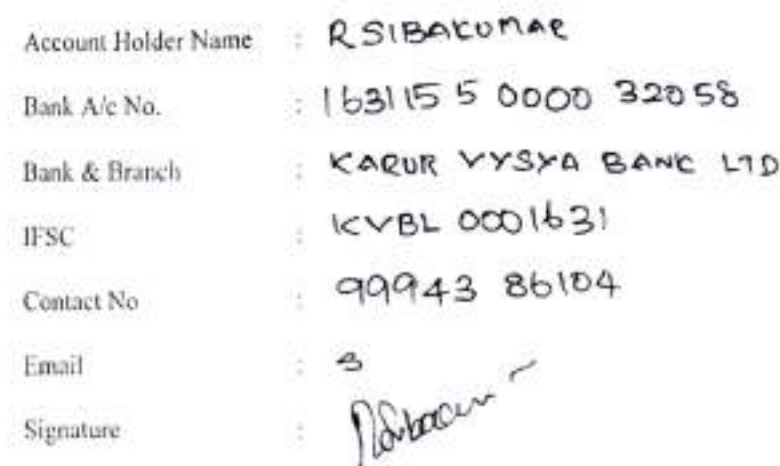 Account Holder Name : R SIBAKUMAR
Bank A/c No. : 1631155 0000 32058
Bank & Branch : KARUR VYSYA BANK LTD
IFSC : KVBL 0001631
Contact No : 99943 86104
Email :
Signature :